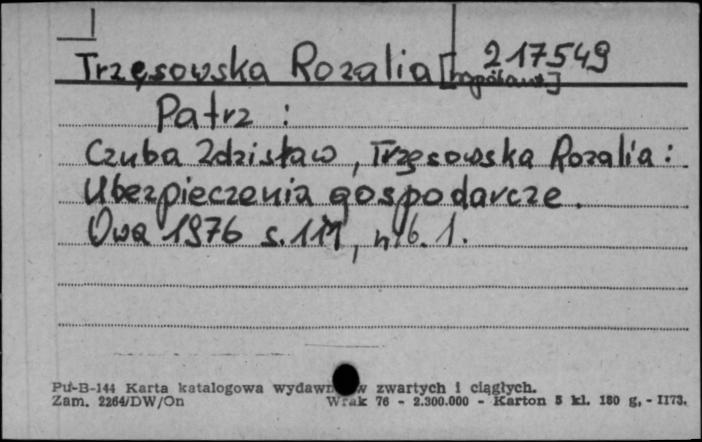 217549
Trzęsowska Rozalia [współaut.]
Patrz :
Czuba Zdzisław, Trzęsowska Rozalia :
Ubezpieczenia gospodarcze.
1976 s. 111, nlb. 1.
Pu-B-144 Karta katalogowa zwartych i ciągłych.
Zam. 2264/DW/On Wrak 76 - 2.300.000 - Karton 5 kl. 180 g, - 1173.